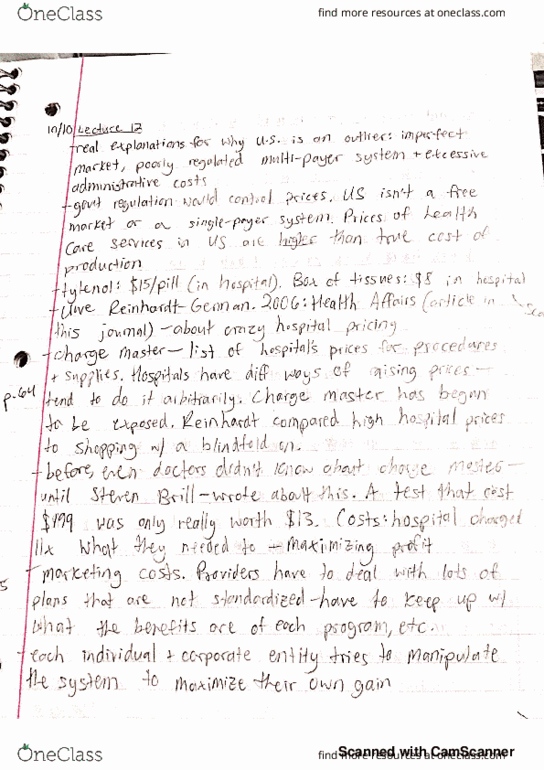 OneClass
find more resources at oneclass.com
10/10 Lecture 12
-real explanations for why U.S. is an outlier: imperfect
market, poorly regulated multi-payer system + excessive
administrative costs
-govt regulation would control prices. US isn't a free
market or a single-payer system. Prices of health
care services in US are higher than true cost of
production
-tylenol: $15/pill (in hospital). Box of tissues: $8 in hospital
Reinhardt-German. 2006: Health Affairs (article in
this journal) -about crazy hospital pricing
-charge master- list of hospital's prices for procedures
+ supplies. Hospitals have diff ways of raising prices-
p.64
tend to do it arbitrarily. Charge master has begun
to be exposed. Reinhardt compared high hospital prices
to shopping w/ a blindfold on.
-before, even doctors didn't know about charge master-
until Steven Brill-wrote about this. A test that cost
$199 was only really worth $13. Costs: hospital charged
11x what they needed to -maximizing profit
-marketing costs. Providers have to deal with lots of
plans that are not standardized-have to keep up w/
what the benefits are of each program, etc.
-each individual + corporate entity tries to manipulate
the system to maximize their own gain
OneClass
find more resources at oneclass.com
Scanned with CamScanner